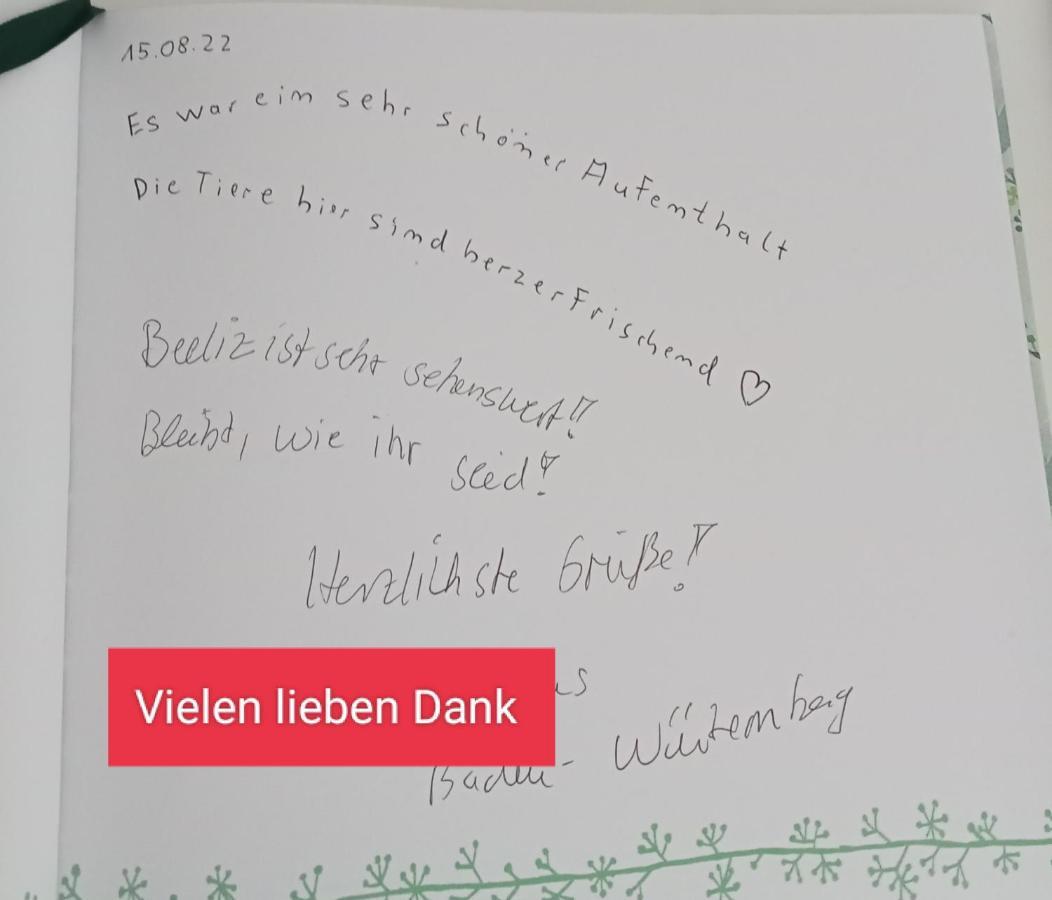 15.08.22
Es war ein sehr schöner Aufenthalt
Die Tiere hier sind herzerfrischend ♡
Beeliz ist sehr sehenswert!!
Bleibt, wie ihr seid!
Herzlichste Grüße!
Vielen lieben Dank
Baden- Würtemberg